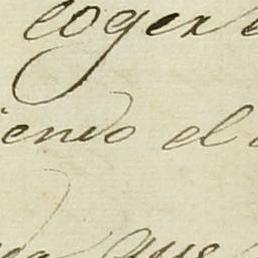 coger
iendo el
que